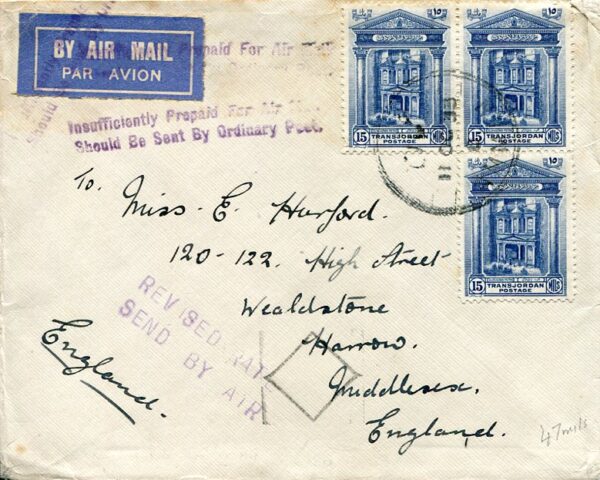 BY AIR MAIL
PAR AVION
Prepaid For Air
Insufficiently Prepaid For Air
Should Be Sent By Ordinary Post.
١٥
15 MILS
TRANSJORDAN
POSTAGE
١٥
15 MILS
TRANSJORDAN
POSTAGE
١٥
15 MILS
TRANSJORDAN
POSTAGE
To.
Miss. E. Hurford.
120-122. High Street
Wealdstone
Harrow.
Middlesex.
England.
England.
REVISED
SEND BY AIR
47 mils